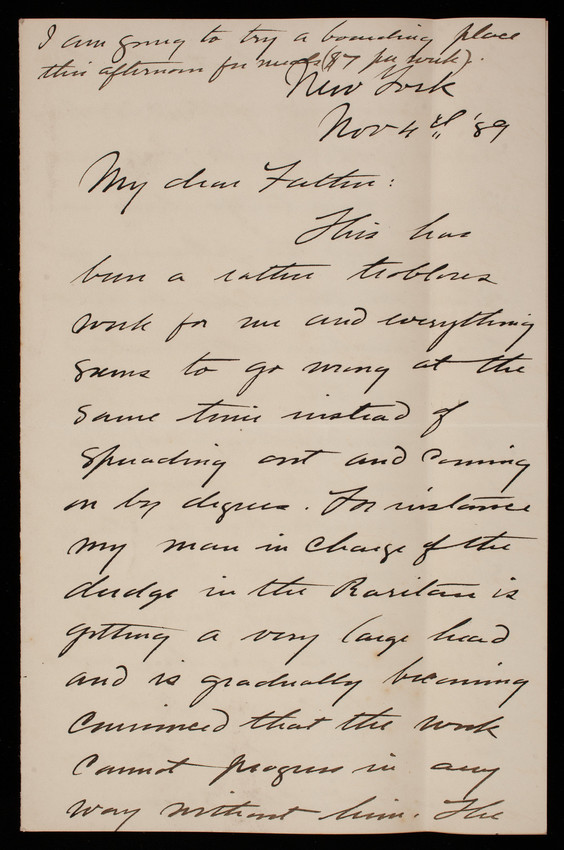 I am going to try a boarding place
this afternoon for meals ($7 per week).
New York
Nov 4th '89
My dear Father:
This has
been a rather troblores
week for me and everything
seems to go wrong at the
same time instead of
spreading out and coming
on by degrees. For instance
my man in charge of the
dredge in the Raritan is
getting a very large head
and is gradually becoming
convinced that the work
cannot progress in any
way without him. The